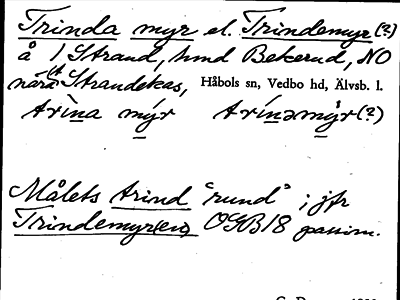 Trinda myr el. Trindemyr(?)
å 1 Strand, hmd Bekerud, NO
nära Strandekas, Håbols sn, Vedbo hd, Älvsb. l.
trìna mýr trínəmỳr(?)
Målets trind "rund"; jfr
Trindemyr(en) OGB 18 passim.